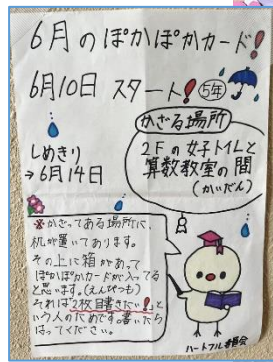 6月のぽかぽかカード!
6月10日 スタート!
5年
かざる場所
2Fの女子トイレと
算数教室の間
(かいだん)
しめきり
→6月14日
※かざってある場所に、
机が置いてあります。
その上に箱があって
ぽかぽかカードが入ってる
と思います。(えんぴつも)
それは「2枚目書きたい!」と
いう人のためです。書いたら
はってください。
ハートフル委員会